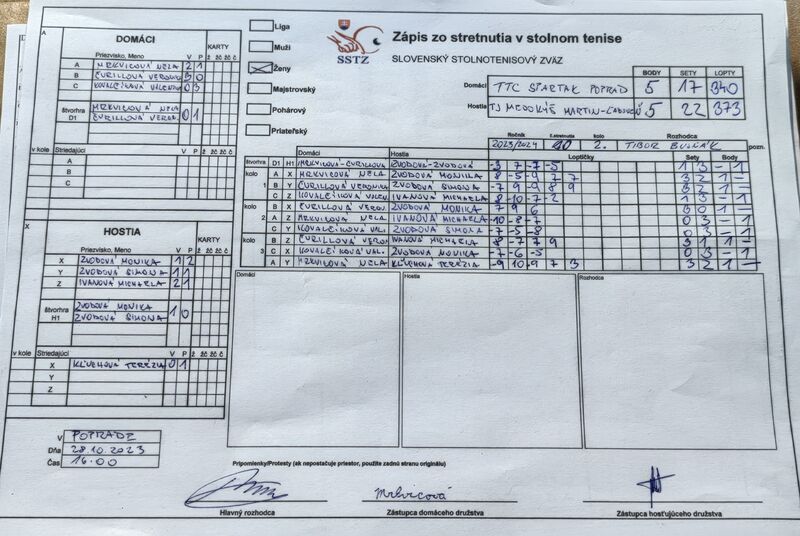 Zápis zo stretnutia v stolnom tenise
SLOVENSKÝ STOLNOTENISOVÝ ZVÄZ
SSTZ
Liga
Muži
Ženy
Majstrovský
Pohárový
Priateľský
BODY SETY LOPTY
Domáci TTC SPARTAK POPRAD 5 17 340
Hostia TJ MEDOKÝŠ MARTIN- 5 22 373
Ročník č.stretnutia kolo Rozhodca
2023/2024 2. TIBOR pozn.
A
DOMÁCI
Priezvisko, Meno V P KARTY ž žč žč č
A MRKVICOVÁ NELA 2 1
B ČURILLOVÁ 3 0
C 0 3
štvorhra D1 MRKVICOVÁ NELA 0 1
ČURILLOVÁ VERON.
v kole Striedajúci V P ž žč žč č
A
B
C
HOSTIA
Priezvisko, Meno V P KARTY ž žč žč č
X ZVODOVÁ MONIKA 1 2
Y ZVODOVÁ SIMONA 1 1
Z IVANOVÁ MICHAELA 2 1
štvorhra H1 ZVODOVÁ MONIKA 1 0
ZVODOVÁ SIMONA
v kole Striedajúci V P ž žč žč č
X KĽUCHOVÁ TERÉZIA 0 1
Y
Z
Domáci Hostia Loptičky Sety Body
štvorhra D1 H1 MRKVICOVÁ-ČURILLOVÁ ZVODOVÁ-ZVODOVÁ -3 7 -7 -5 1 3 - 1
kolo 1 A X MRKVICOVÁ NELA ZVODOVÁ MONIKA 8 -5 -9 7 7 3 2 1 -
B Y ČURILLOVÁ VERONIKA ZVODOVÁ SIMONA -7 9 -9 8 9 3 2 1 -
C Z IVANOVÁ MICHAELA -8 -10 -7 -2
kolo 2 B X ČURILLOVÁ VERON. ZVODOVÁ MONIKA 7 9 6 3 0 1 -
A Z MRKVICOVÁ NELA IVANOVÁ MICHAELA -10 -8 -7 0 3 - 1
C Y KOVALČÍKOVÁ VAL. ZVODOVÁ SIMONA -7 -5 -8 0 3 - 1
kolo 3 B Z ČURILLOVÁ VERON. IVANOVÁ MICHAELA 8 -7 7 9 3 1 1 -
C X KOVALČÍKOVÁ VAL. ZVODOVÁ MONIKA -7 -6 -5 0 3 - 1
A Y MRKVICOVÁ NELA KĽUCHOVÁ TERÉZIA -9 10 -9 7 3 3 2 1 -
Domáci
Hostia
Rozhodca
V POPRADE
Dňa 28.10.2023
Čas 16.00
Pripomienky/Protesty (ak nepostačuje priestor, použite zadnú stranu originálu)
Mrkvicová
Hlavný rozhodca
Zástupca domáceho družstva
Zástupca hosťujúceho družstva